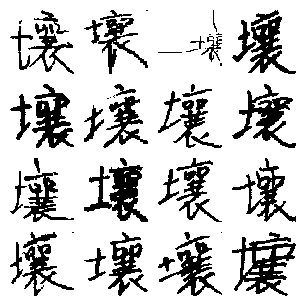 壤壤壤壤
壤壤壤壤
壤壤壤壤
壤壤壤壤